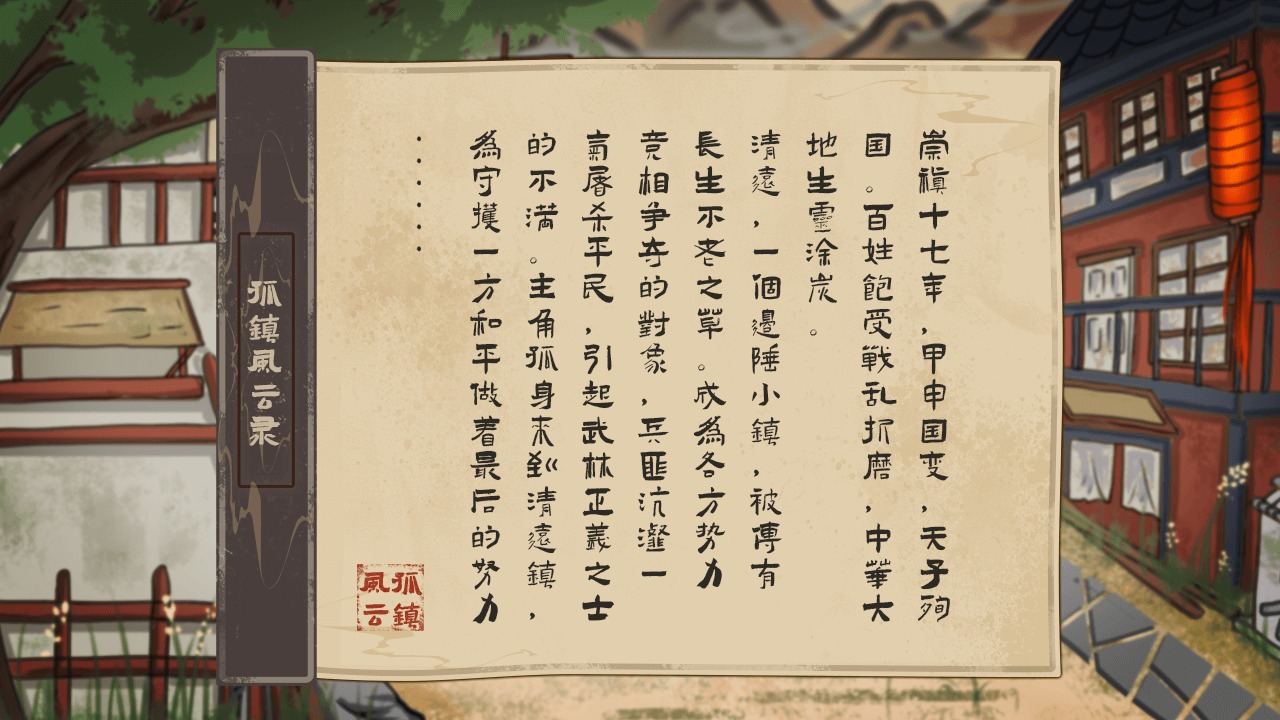 崇禎十七年，甲申国变，天子殉
国。百姓飽受戰乱折磨，中華大
地生靈涂炭。
清遠，一個邊陲小鎮，被傳有
長生不老之草。成為各方势力
竞相争夺的對象，兵匪沆瀣一
氣屠杀平民，引起武林正義之士
的不満。主角孤身来到清遠鎮，
為守護一方和平做着最后的努力
......
孤鎮風云录
孤鎮
風云